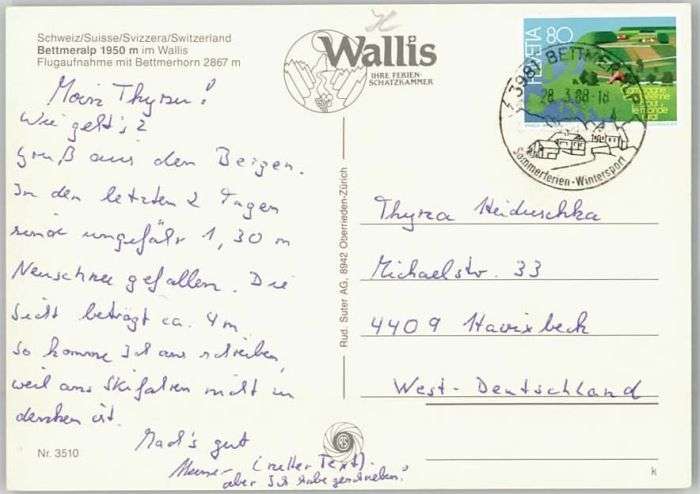 Schweiz/Suisse/Svizzera/Switzerland
Bettmeralp 1950 m im Wallis
Flugaufnahme mit Bettmerhorn 2867 m
Wallis
IHRE FERIEN-
SCHATZKAMMER
HELVETIA 80
3981 BETTMERALP
28.3.88-18
Sommerferien-Wintersport
Moin Thyra!
Wie geht's?
Gruß aus den Bergen.
In den letzten 2 Tagen
sind ungefähr 1,30 m
Neuschnee gefallen. Die
Sicht beträgt ca. 4m
so komme Ich ans schreiben,
weil ans Skifahren nicht zu
denken ist.
Mach's gut
(netter Text).
aber Ich habe geschrieben!
Thyra Heiduschka
Michaelstr. 33
4409 Havixbeck
West-Deutschland
Rud. Suter AG, 8942 Oberrieden-Zürich
Nr. 3510
k